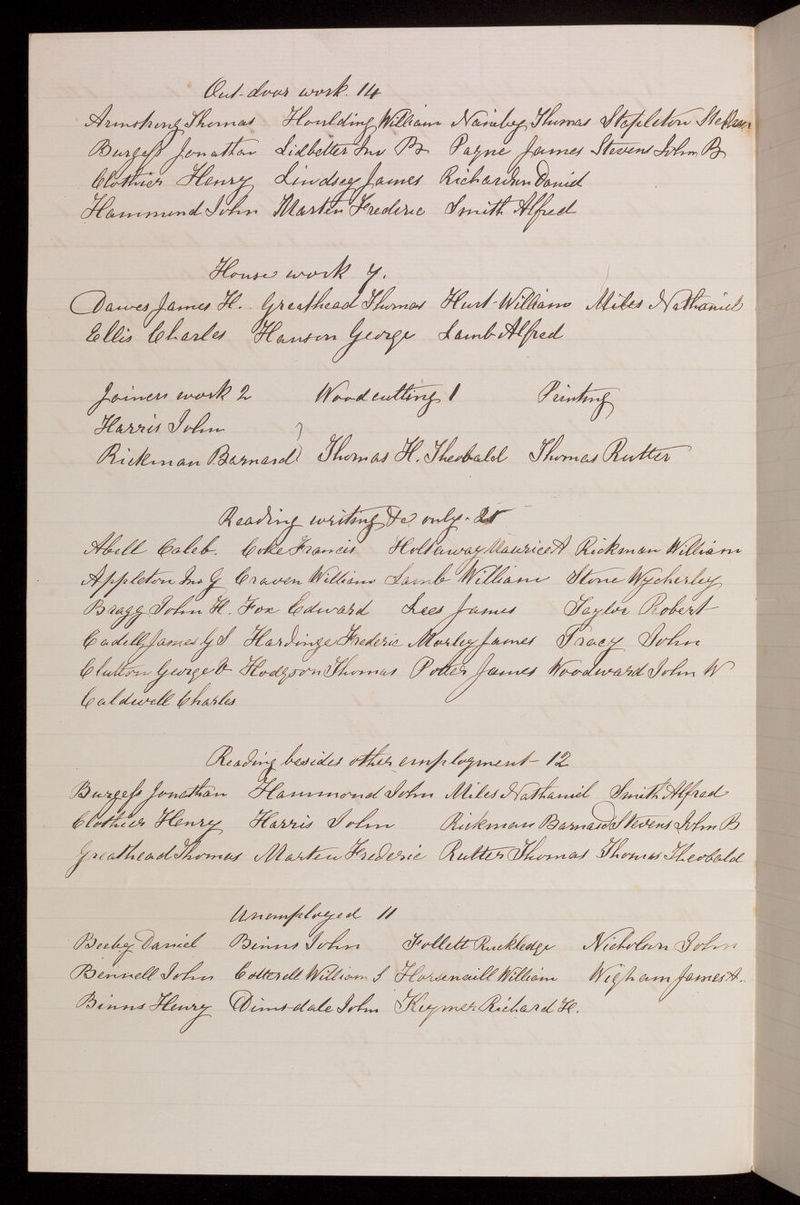 Out-door work. 14
Armstrong Thomas Houlding William Nainby Thomas Stapleton
Burgess Jonathan Lidbetter Jno B Payne James Stevens John B
Clothier Henry Lindsey James Richardson David
Hammond John Marten Frederic Smith Alfred
House work 7.
Dawes James H. Greathead Thomas Hurt William Miles Nathaniel
Ellis Charles Hanson George Lamb Alfred
Joiners work 2 Wood cutting 1 Printing
Harris John
Rickman Barnard Thomas H. Theobald Thomas Rutter
Reading writing &c only. 21
Abell Caleb. Coke Francis Holtaway Maurice A Rickman William
Appleton Jno G Craven William Lamb William Stone Wycherley
Bragg John H. Fox Edward Lees James Taylor Robert
Cadell James G S Hardinge Frederic Morley James Tracy John
Clutton George Hodgson Thomas Potter James Woodward John W
Caldwell Charles
Reading besides other employment 12
Burgess Jonathan Hammond John Miles Nathaniel Smith Alfred
Clothier Henry Harris John Rickman Barnard Stevens John B
Greathead Thomas Marten Frederic Rutter Thomas Thomas Theobald
Unemployed 11
Beeby Daniel Binns John Follett Ruckledge Nicholson John
Bennell John Cotterell William S Horsenaill William Wigham James A.
Binns Henry Dimsdale John Keymer Richard H.